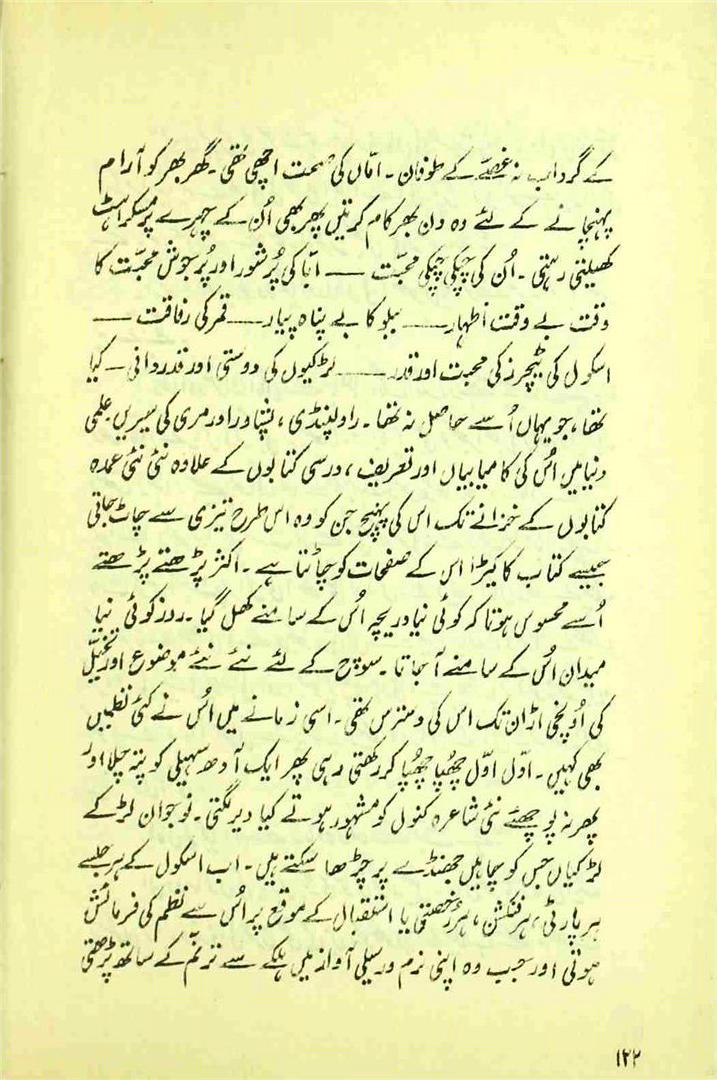 کے گرداب نہ غصّے کے طوفان ۔ امّاں کی صحت اچھی تھی ۔ گھر بھر کو آرام
پہنچانے کے لئے وہ دن بھر کام کرتیں پھر بھی اُن کے چہرے پر مسکراہٹ
کھیلتی رہتی ۔ اُن کی چپکی چپکی محبّت ـــــ ابّا کی پُرشور اور پُرجوش محبّت کا
وقت بے وقت اظہار ـــــ ببلو کا بے پناہ پیار ـــــ قمر کی رفاقت ـــــ
اسکول کی ٹیچرز کی محبت اور قدر ـــــ لڑکیوں کی دوستی اور قدردانی ـــ کیا
تھا ، جو یہاں اُسے حاصل نہ تھا ۔ راولپنڈی ، پشاور اور مری کی سیریں علمی
دنیا میں اُس کی کامیابیاں اور تعریف ، درسی کتابوں کے علاوہ نئی نئی عمدہ
کتابوں کے خزانے تک اس کی پہنچ جن کو وہ اس طرح تیزی سے چاٹ جاتی
جیسے کتاب کا کیڑا اس کے صفحات کو چاٹتا ہے ۔ اکثر پڑھتے پڑھتے
اُسے محسوس ہوتا کہ کوئی نیا دریچہ اُس کے سامنے کھل گیا ۔ روز کوئی نیا
میدان اُس کے سامنے آ جاتا ۔ سوچ کے لئے نئے نئے موضوع اور تخیّل
کی اُونچی اڑان تک اس کی دسترس تھی ۔ اسی زمانے میں اُس نے کئی نظمیں
بھی کہیں ۔ اوّل اوّل چھُپا چھُپا کر رکھتی رہی پھر ایک آدھ سہیلی کو پتہ چلا اور
پھر نہ پوچھئے نئی شاعرہ کنول کو مشہور ہوتے کیا دیر لگتی ۔ نوجوان لڑکے
لڑکیاں جس کو چاہیں جھنڈے پر چڑھا سکتے ہیں ۔ اب اسکول کے ہر جلسے
ہر پارٹی ، ہر فنکشن ، ہر رُخصتی یا استقبال کے موقع پر اُس سے نظم کی فرمائش
ہوتی اور جب وہ اپنی نرم و رسیلی آواز میں ہلکے سے ترنّم کے ساتھ پڑھتی
۱۲۲